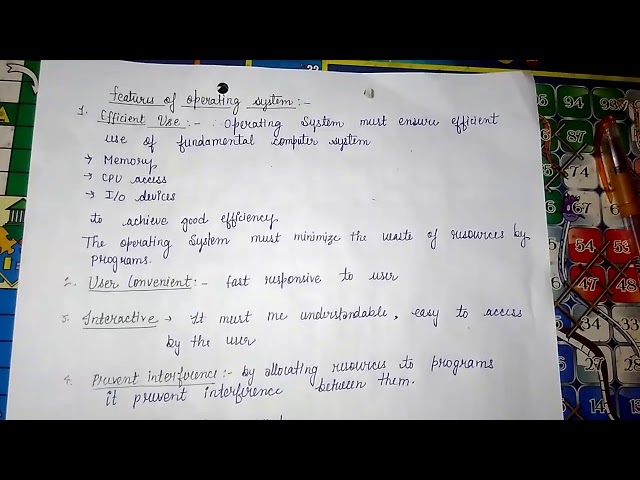 features of operating system :-
1. Efficient Use :- : Operating System must ensure efficient
use of fundamental computer system
→ Memory
→ CPU access
→ I/O devices
to achieve good efficiency
The operating System must minimize the waste of resources by
programs.
2. User Convenient :- fast responsive to user
3. Interactive → It must me understandable, easy to access
by the user
4. Prevent interference :- by allocating resources to programs
it prevent interference between them.